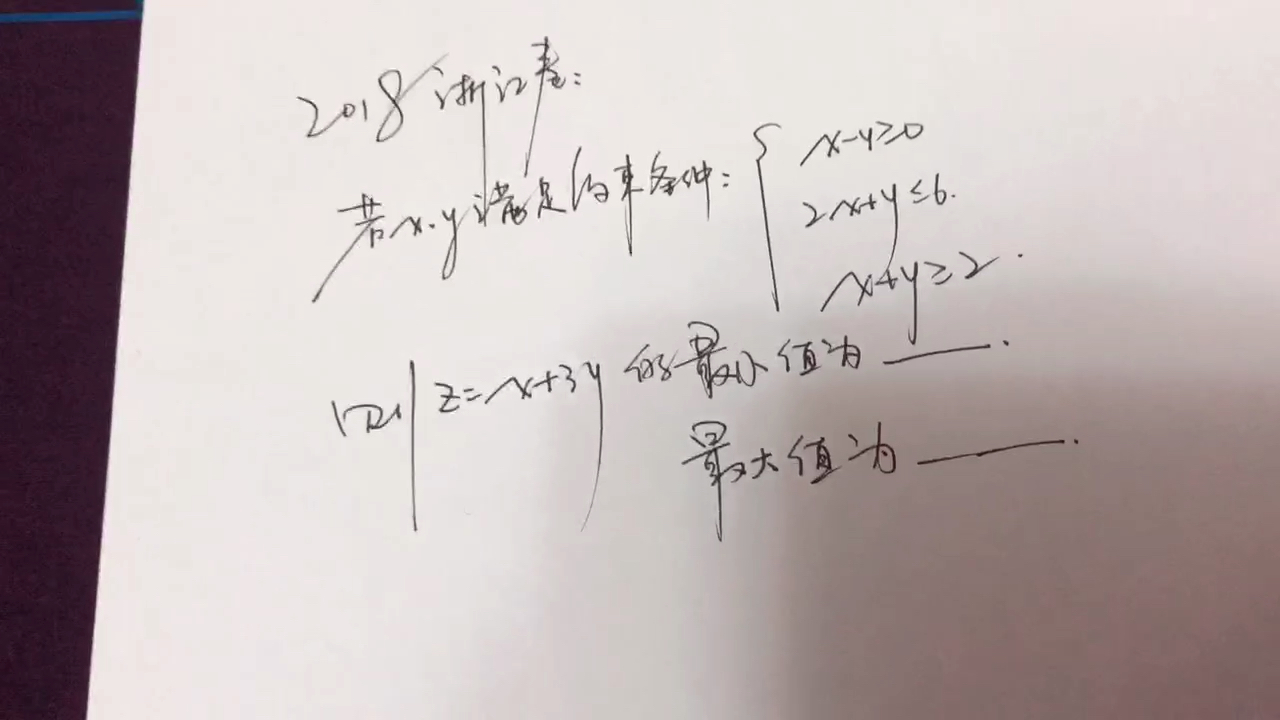 2018浙江卷:
若x.y满足约束条件: { x-y≥0
2x+y≤6.
x+y≥2.
则z=x+3y的最小值为______.
最大值为______.